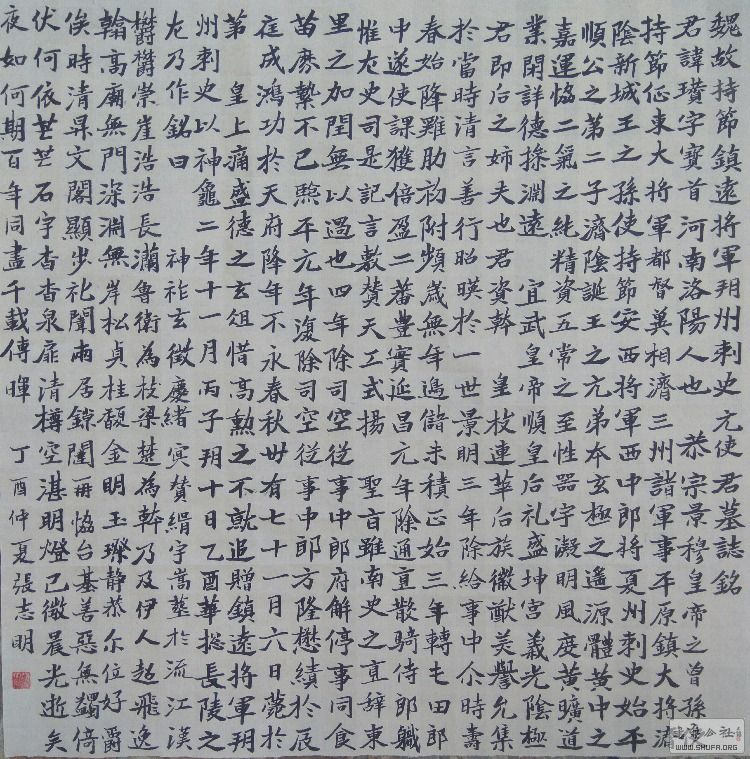 魏故持節鎮遠將軍朔州刺史元使君墓誌銘
君諱瓚字寶首河南洛陽人也 恭宗景穆皇帝之曾孫使
持節征東大將軍都督冀相濟三州諸軍事平原鎮大將濟
陰新城王之孫使持節安西將軍西中郎將夏州刺史始平
順公之第二子濟陰誕王之元弟本玄極之遥源體黄中之
嘉運恊二氣之純精資五常之至性器宇凝明風度黄曠道
業閑詳德操淵遠 宜武皇帝順皇后礼盛坤宫義光陰極
君即后之姉夫也君資幹 皇枝連華后族徽猷美譽允集
於當時清言善行昭暎於一世景明三年除給事中時壽
春始降雞肋初附頻歲無年邊儲未積正始三年轉屯田郎
中遂使課獲倍盈二蕃豐實延昌元年除通直散騎侍郎軄
惟左史司是記言敷贊天工式揚 聖旨雖南史之直辭東
里之加閏無以過也四年除司空從事中郎府解停事同食
苗縻縶不已熙平元年復除司空從事中郎方隆懋績於辰
庭成鴻功於天府降年不永春秋卌有七十一月六日薨於
第 皇上痛盛德之玄徂惜高勲之不就追贈鎮遠將軍朔
州刺史以神龜二年十一月丙子朔十日乙酉葬緫長陵之
左乃作銘曰 神祚玄徵慶緒㝠贊緝宇嵩於流江漢
欝欝崇崖浩浩長瀾魯衛為枝梁楚為幹乃及伊人超飛逸
翰高廟無門深淵無岸松貞桂馥金明玉璨静恭尔位好爵
俟時清昇文閣顯步礼闈兩居錦闥再恊台基善惡無蠲倚
伏何依芒芒石宇杳杳泉扉清樽空湛明燈已微晨光逝矣
夜如何期百年同盡千載傳暉 丁酉仲夏張志明
書法公社
WWW.SHUFA.ORG